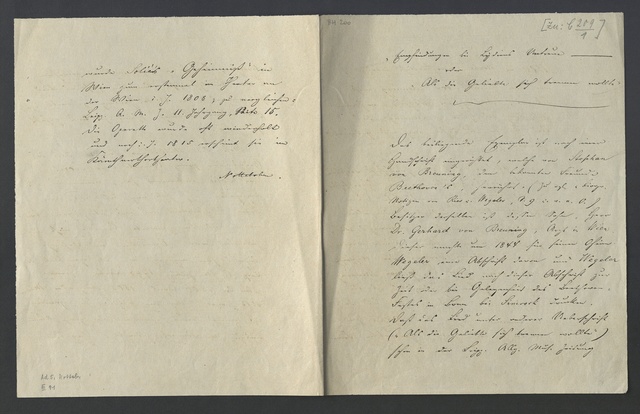 [zu: C 219/1]
Empfindungen bei Lydiens Untreue
oder
Als die Geliebte sich trennen wollte
Das beiliegende Exemplar ist nach einer
Handschrift angefertigt, welche von Stephan
von Breuning, dem bekannten Freunde
Beethoven's, herrührt. (Zu vgl. biogr.
Notizen von Ries u. Wegeler, S. 9 u. a. a. O.)
Besitzer derselben ist dessen Sohn, Herr
Dr. Gerhard von Breuning, Arzt in Wien.
Dieser machte um 1844 für seinen Oheim
Wegeler eine Abschrift davon und Wegeler
ließ das Lied nach dieser Abschrift zur
Zeit oder bei Gelegenheit des Beethoven-
Festes in Bonn bei Simrock drucken.
Daß das Lied unter anderer Ueberschrift
("Als die Geliebte sich trennen wollte")
schon in der Leipz. Allg. Mus. Zeitung
wurde Solié's "Geheimniß" in
Wien zum erstenmal im Theater an
der Wien i. J. 1808; zu vergleichen:
Leipz. A. M. Z. 11. Jahrgang, Seite 15.
Die Operette wurde oft wiederholt
und noch i. J. 1815 erscheint sie im
Kärnthnerthortheater.
Nottebohm.